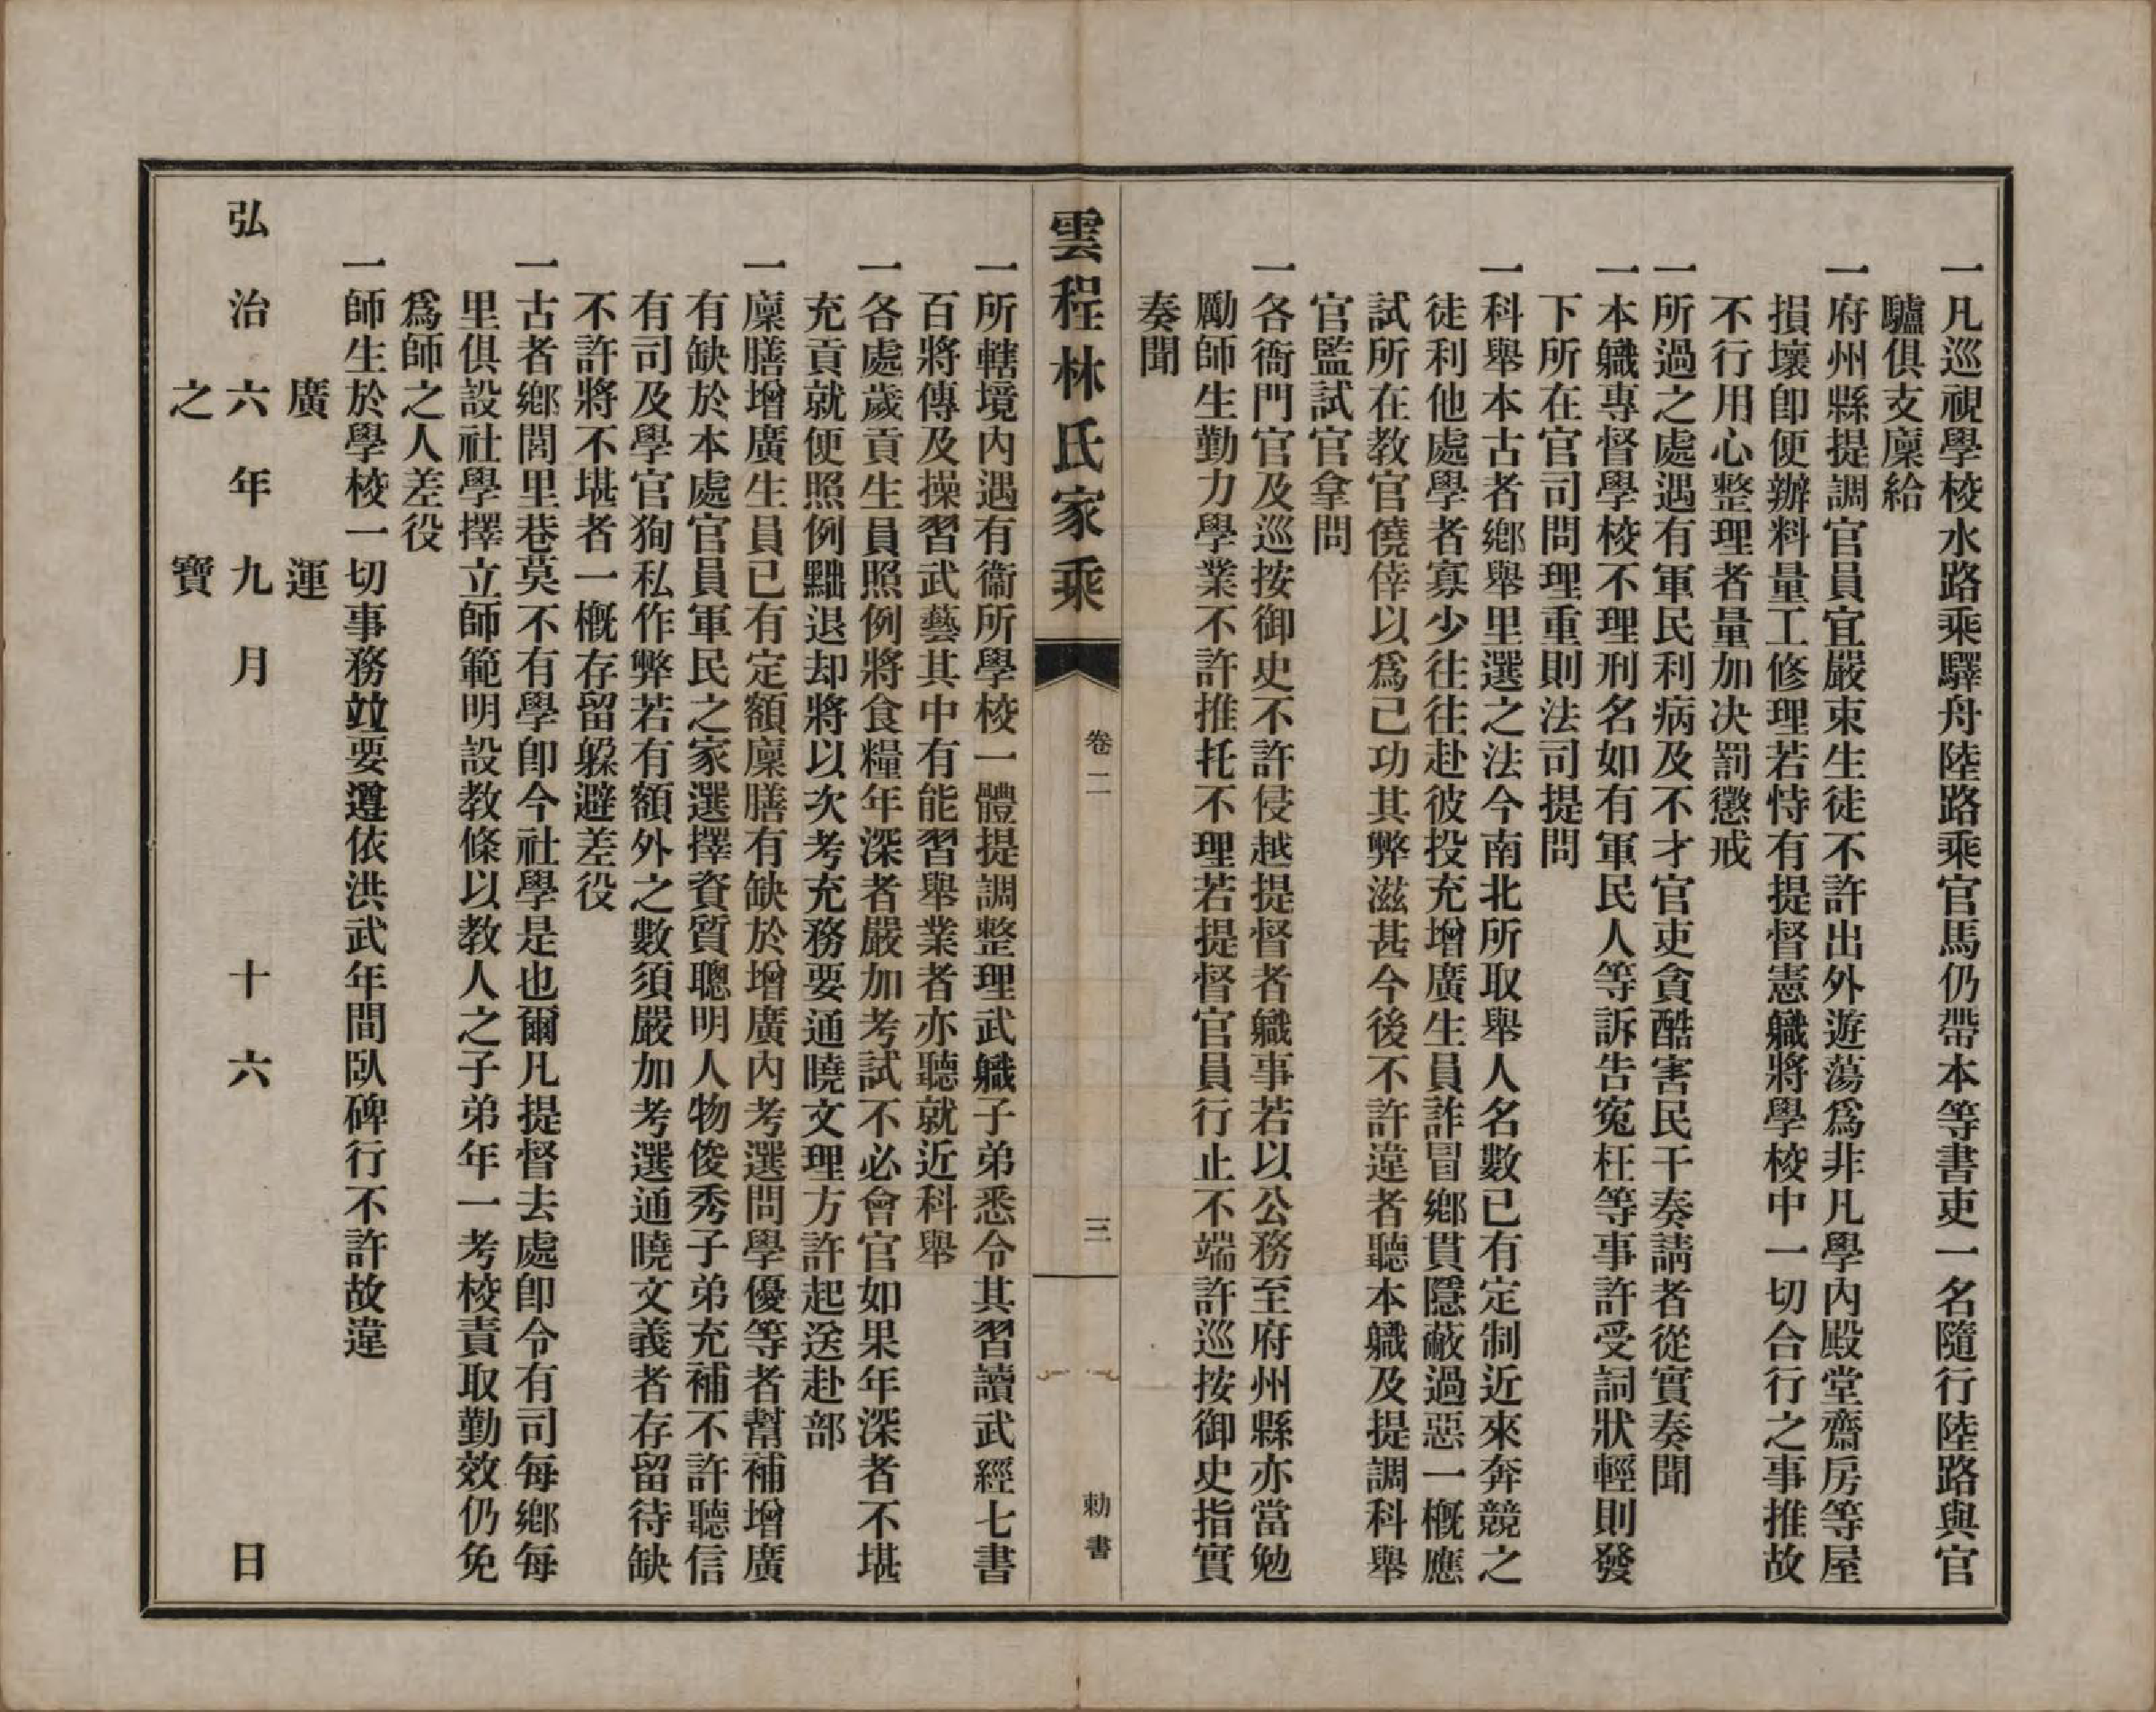 一凡巡視學校水路乘驛舟陸路乘官馬仍帶本等書吏一名隨行陸路與官
驢俱支廩給
一府州縣提調官員宜嚴束生徒不許出外遊蕩爲非凡學內殿堂齋房等屋
損壞卽便辦料量工修理若恃有提督憲軄將學校中一切合行之事推故
不行用心整理者量加決罰懲戒
一所過之處遇有軍民利病及不才官吏貪酷害民干奏請者從實奏聞
一本軄專督學校不理刑名如有軍民人等訴告冤枉等事許受詞狀輕則發
下所在官司問理重則法司提問
一科舉本古者鄉舉里選之法今南北所取舉人名數已有定制近來奔競之
徒利他處學者寡少往往赴彼投充增廣生員詐冒鄉貫隱蔽過惡一概應
試所在教官僥倖以爲己功其弊滋甚今後不許違者聽本軄及提調科舉
官監試官拿問
一各衙門官及巡按御史不許侵越提督者軄事若以公務至府州縣亦當勉
勵師生勤力學業不許推托不理若提督官員行止不端許巡按御史指實
奏聞
雲程林氏家乘
卷二
三
勅書
一所轄境內遇有衞所學校一體提調整理武軄子弟悉令其習讀武經七書
百將傳及操習武藝其中有能習舉業者亦聽就近科舉
一各處歲貢生員照例將食糧年深者嚴加考試不必會官如果年深者不堪
充貢就便照例黜退却將以次考充務要通曉文理方許起送赴部
一廩膳增廣生員已有定額廩膳有缺於增廣內考選問學優等者幫補增廣
有缺於本處官員軍民之家選擇資質聰明人物俊秀子弟充補不許聽信
有司及學官狥私作弊若有額外之數須嚴加考選通曉文義者存留待缺
不許將不堪者一概存留躱避差役
一古者鄉閭里巷莫不有學卽今社學是也爾凡提督去處卽令有司每鄉每
里俱設社學擇立師範明設教條以教人之子弟年一考校責取勤效仍免
爲師之人差役
一師生於學校一切事務竝要遵依洪武年間臥碑行不許故違
廣運
弘治六年九月十六日
之寶